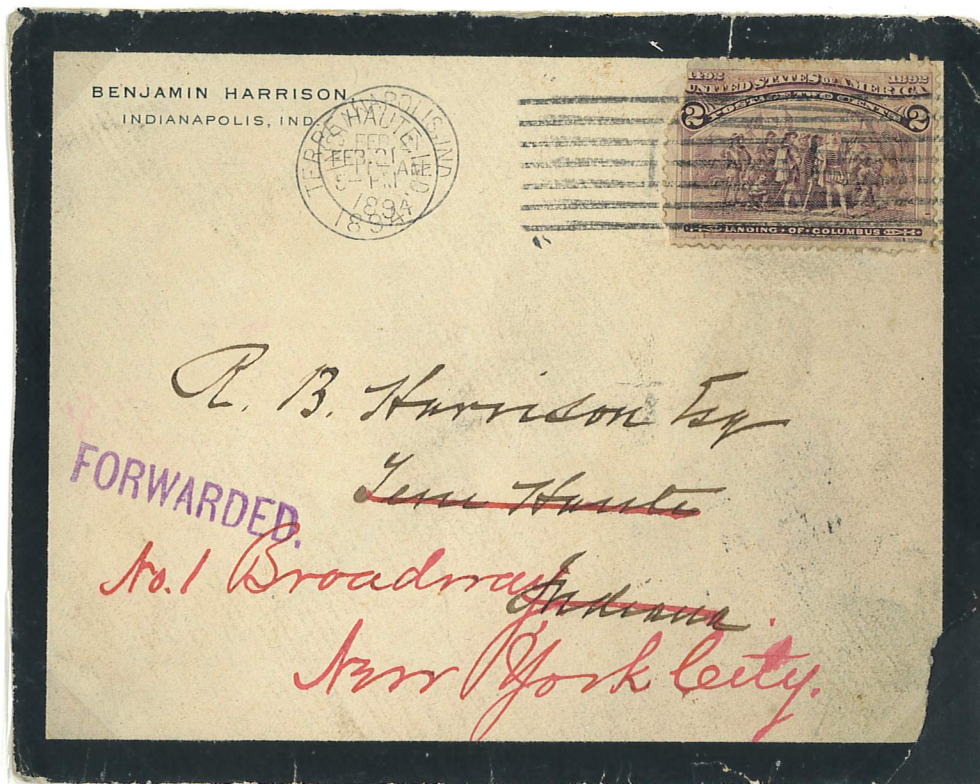 BENJAMIN HARRISON,
INDIANAPOLIS, IND.
TERRE HAUTE IND
FEB 21
5 - PM
1894
1894
1492 1892
UNITED STATES OF AMERICA
POSTAGE TWO CENTS
2 2
LANDING · OF · COLUMBUS
R. B. Harrison Esq
Terre Haute
Indiana
FORWARDED.
No. 1 Broadway,
New York City.